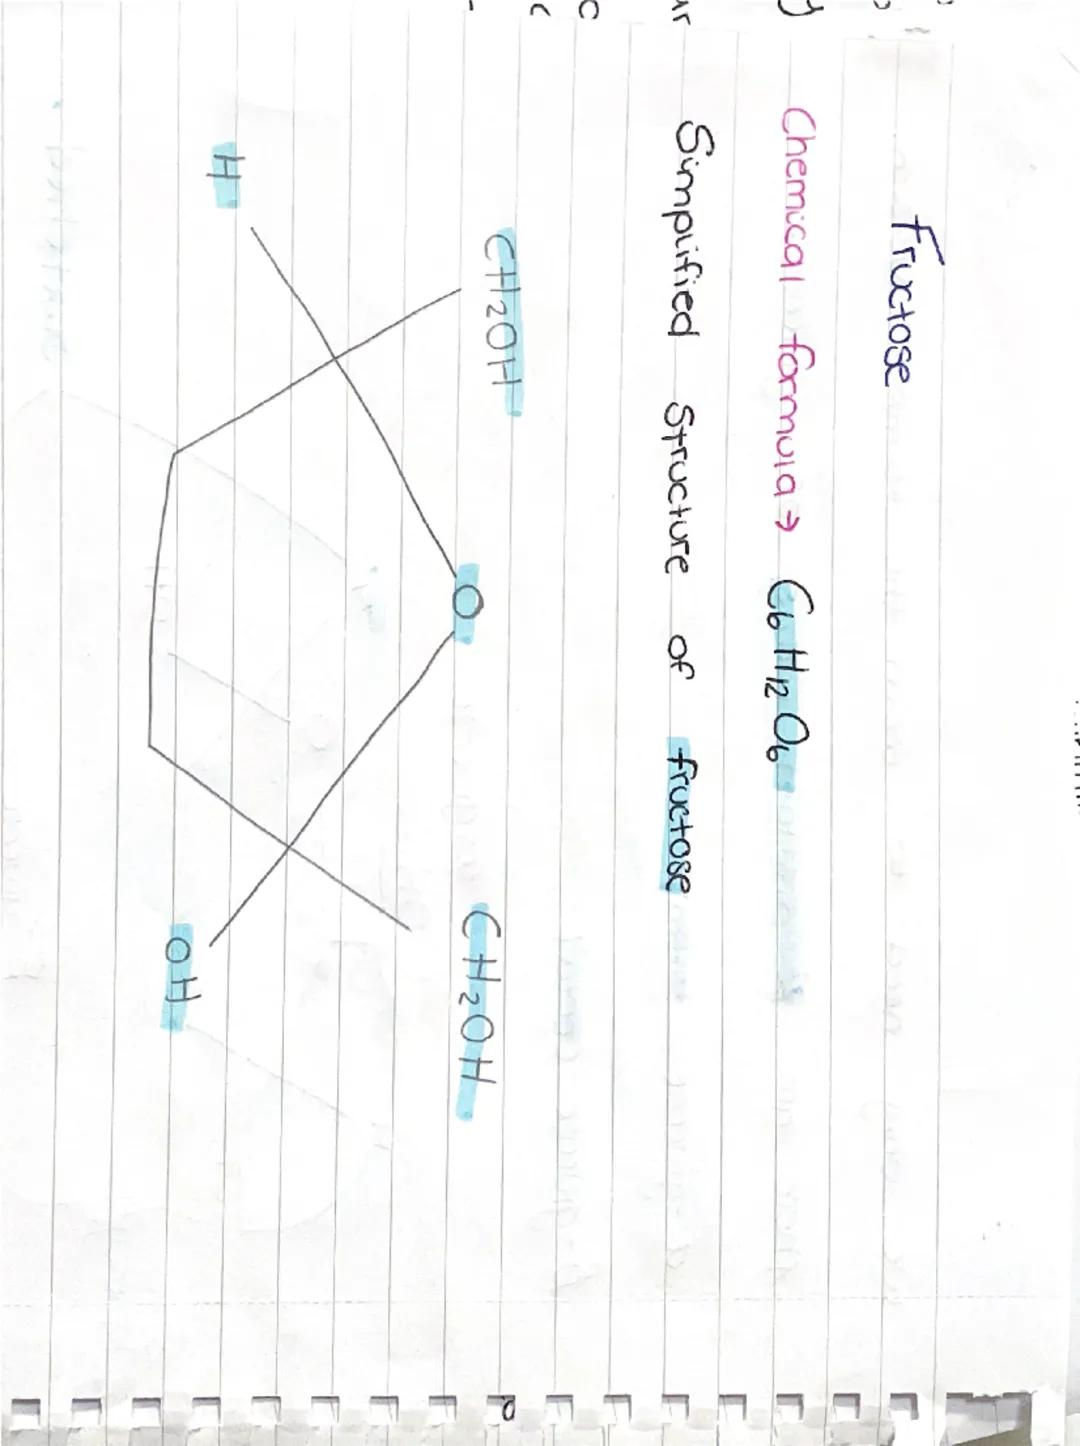 Fructose
Chemical formula → C6 H12 O6
Simplified Structure of fructose
CH2OH O CH2OH
H OH